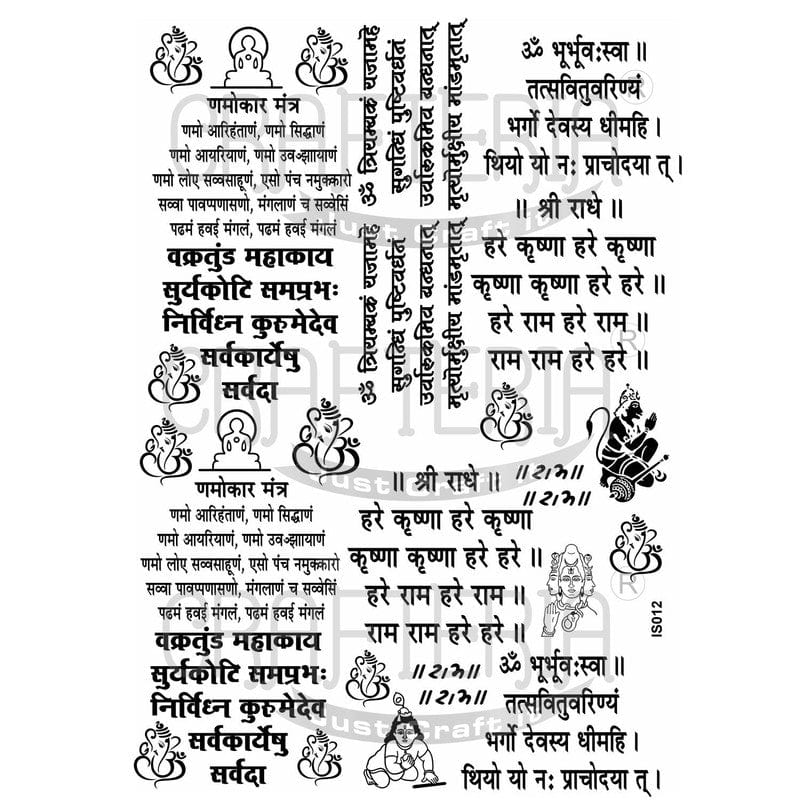 णमोकार मंत्र
णमो आरिहंताणं, णमो सिद्धाणं
णमो आयरियाणं, णमो उवज्झायाणं
णमो लोए सव्वसाहूणं, एसो पंच नमुक्कारो
सव्वा पावप्पणासणो, मंगलाणं च सव्वेसिं
पढमं हवई मंगलं, पढमं हवई मंगलं
वक्रतुंड महाकाय
सुर्यकोटि समप्रभः
निर्विध्न कुरुमेदेव
सर्वकार्येषु
सर्वदा
ॐ त्रियम्बकं यजामहे
सुगन्धिं पुष्टिवर्धनं
उर्वारुकमिव बन्धनात्
मृत्योर्मुक्षीय मांडमृतात्
ॐ त्रियम्बकं यजामहे
सुगन्धिं पुष्टिवर्धनं
उर्वारुकमिव बन्धनात्
मृत्योर्मुक्षीय मांडमृतात्
ॐ भूर्भूवःस्वा ॥
तत्सवितुवरिण्यं
भर्गो देवस्य धीमहि।
थियो यो नः प्राचोदया त्।
॥ श्री राधे ॥
हरे कृष्णा हरे कृष्णा
कृष्णा कृष्णा हरे हरे ॥
हरे राम हरे राम ॥
राम राम हरे हरे ॥
णमोकार मंत्र
णमो आरिहंताणं, णमो सिद्धाणं
णमो आयरियाणं, णमो उवज्झायाणं
णमो लोए सव्वसाहूणं, एसो पंच नमुक्कारो
सव्वा पावप्पणासणो, मंगलाणं च सव्वेसिं
पढमं हवई मंगलं, पढमं हवई मंगलं
वक्रतुंड महाकाय
सुर्यकोटि समप्रभः
निर्विध्न कुरुमेदेव
सर्वकार्येषु
सर्वदा
॥ श्री राधे ॥
हरे कृष्णा हरे कृष्णा
कृष्णा कृष्णा हरे हरे ॥
हरे राम हरे राम ॥
राम राम हरे हरे ॥
॥राम॥
॥राम॥
॥राम॥
॥राम॥
IS012
ॐ भूर्भूवःस्वा ॥
तत्सवितुवरिण्यं
भर्गो देवस्य धीमहि।
थियो यो नः प्राचोदया त्।
CRAFTERIA ®
Just Craft It
CRAFTERIA ®
Just Craft It
CRAFTERIA ®
Just Craft It